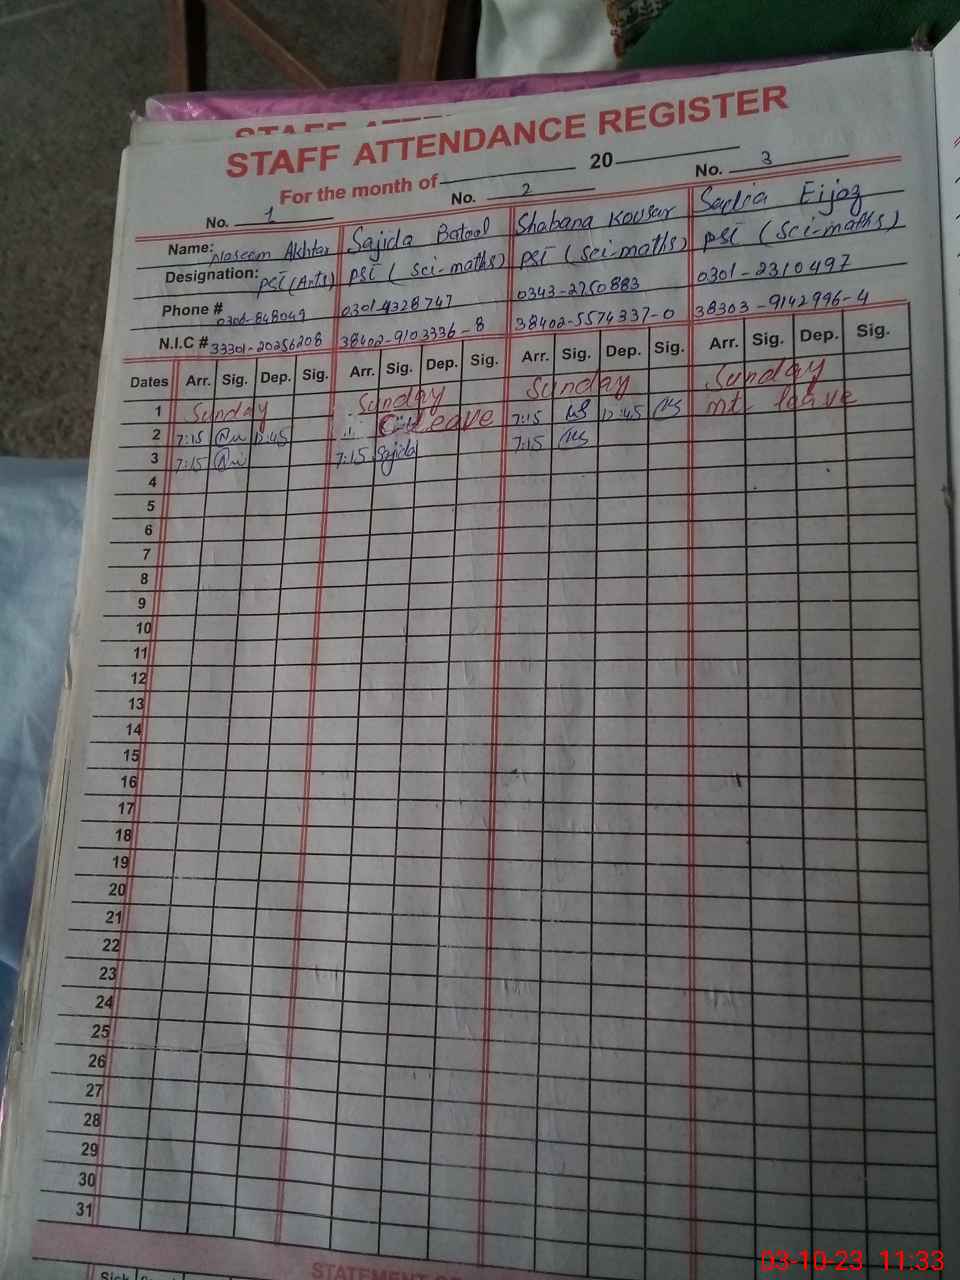 STAFF ATTENDANCE REGISTER
STAFF ATTENDANCE REGISTER
For the month of 20
No. 1 No. 2 No. 3
Name: Naseem Akhtar Sajida Batool Shabana Kousar Sadia Eijaz
Designation: PST (Arts) PST (Sci-maths) PST (Sci-maths) PST (Sci-maths)
Phone # 0301-4328747 0343-2750883 0301-2310497
N.I.C # 33301-20256208 38402-9103336-8 38402-5574337-0 38303-9142996-4
Dates Arr. Sig. Dep. Sig. Arr. Sig. Dep. Sig. Arr. Sig. Dep. Sig. Arr. Sig. Dep. Sig.
1 Sunday Sunday Sunday Sunday
2 7:15 12:45 leave 7:15 12:45 mt. leave
3 7:15 7:15 Sajida 7:15
4
5
6
7
8
9
10
11
12
13
14
15
16
17
18
19
20
21
22
23
24
25
26
27
28
29
30
31
STATEMENT
Sick
03-10-23 11:33